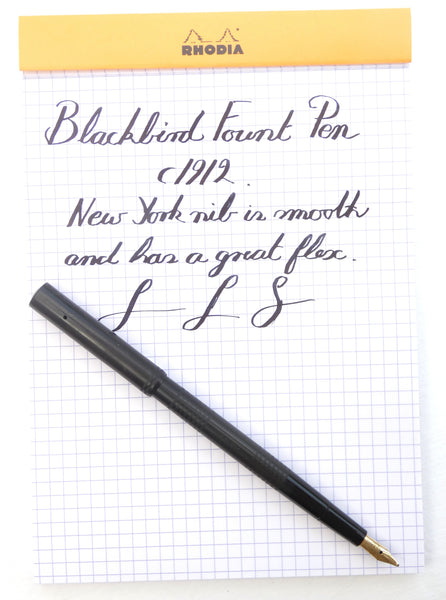 RHODIA
Blackbird Fount Pen
c1912.
New York nib is smooth
and has a great flex.